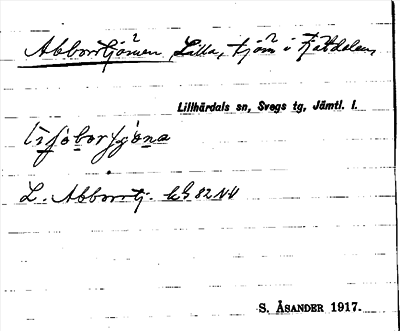 Abborrtjärnen, Lilla, tjärn i Fjätdalen,
Lillhärdals sn, Svegs tg, Jämtl. l.
L. Abborrtj. kG 82 NV
S. ÅSANDER 1917.